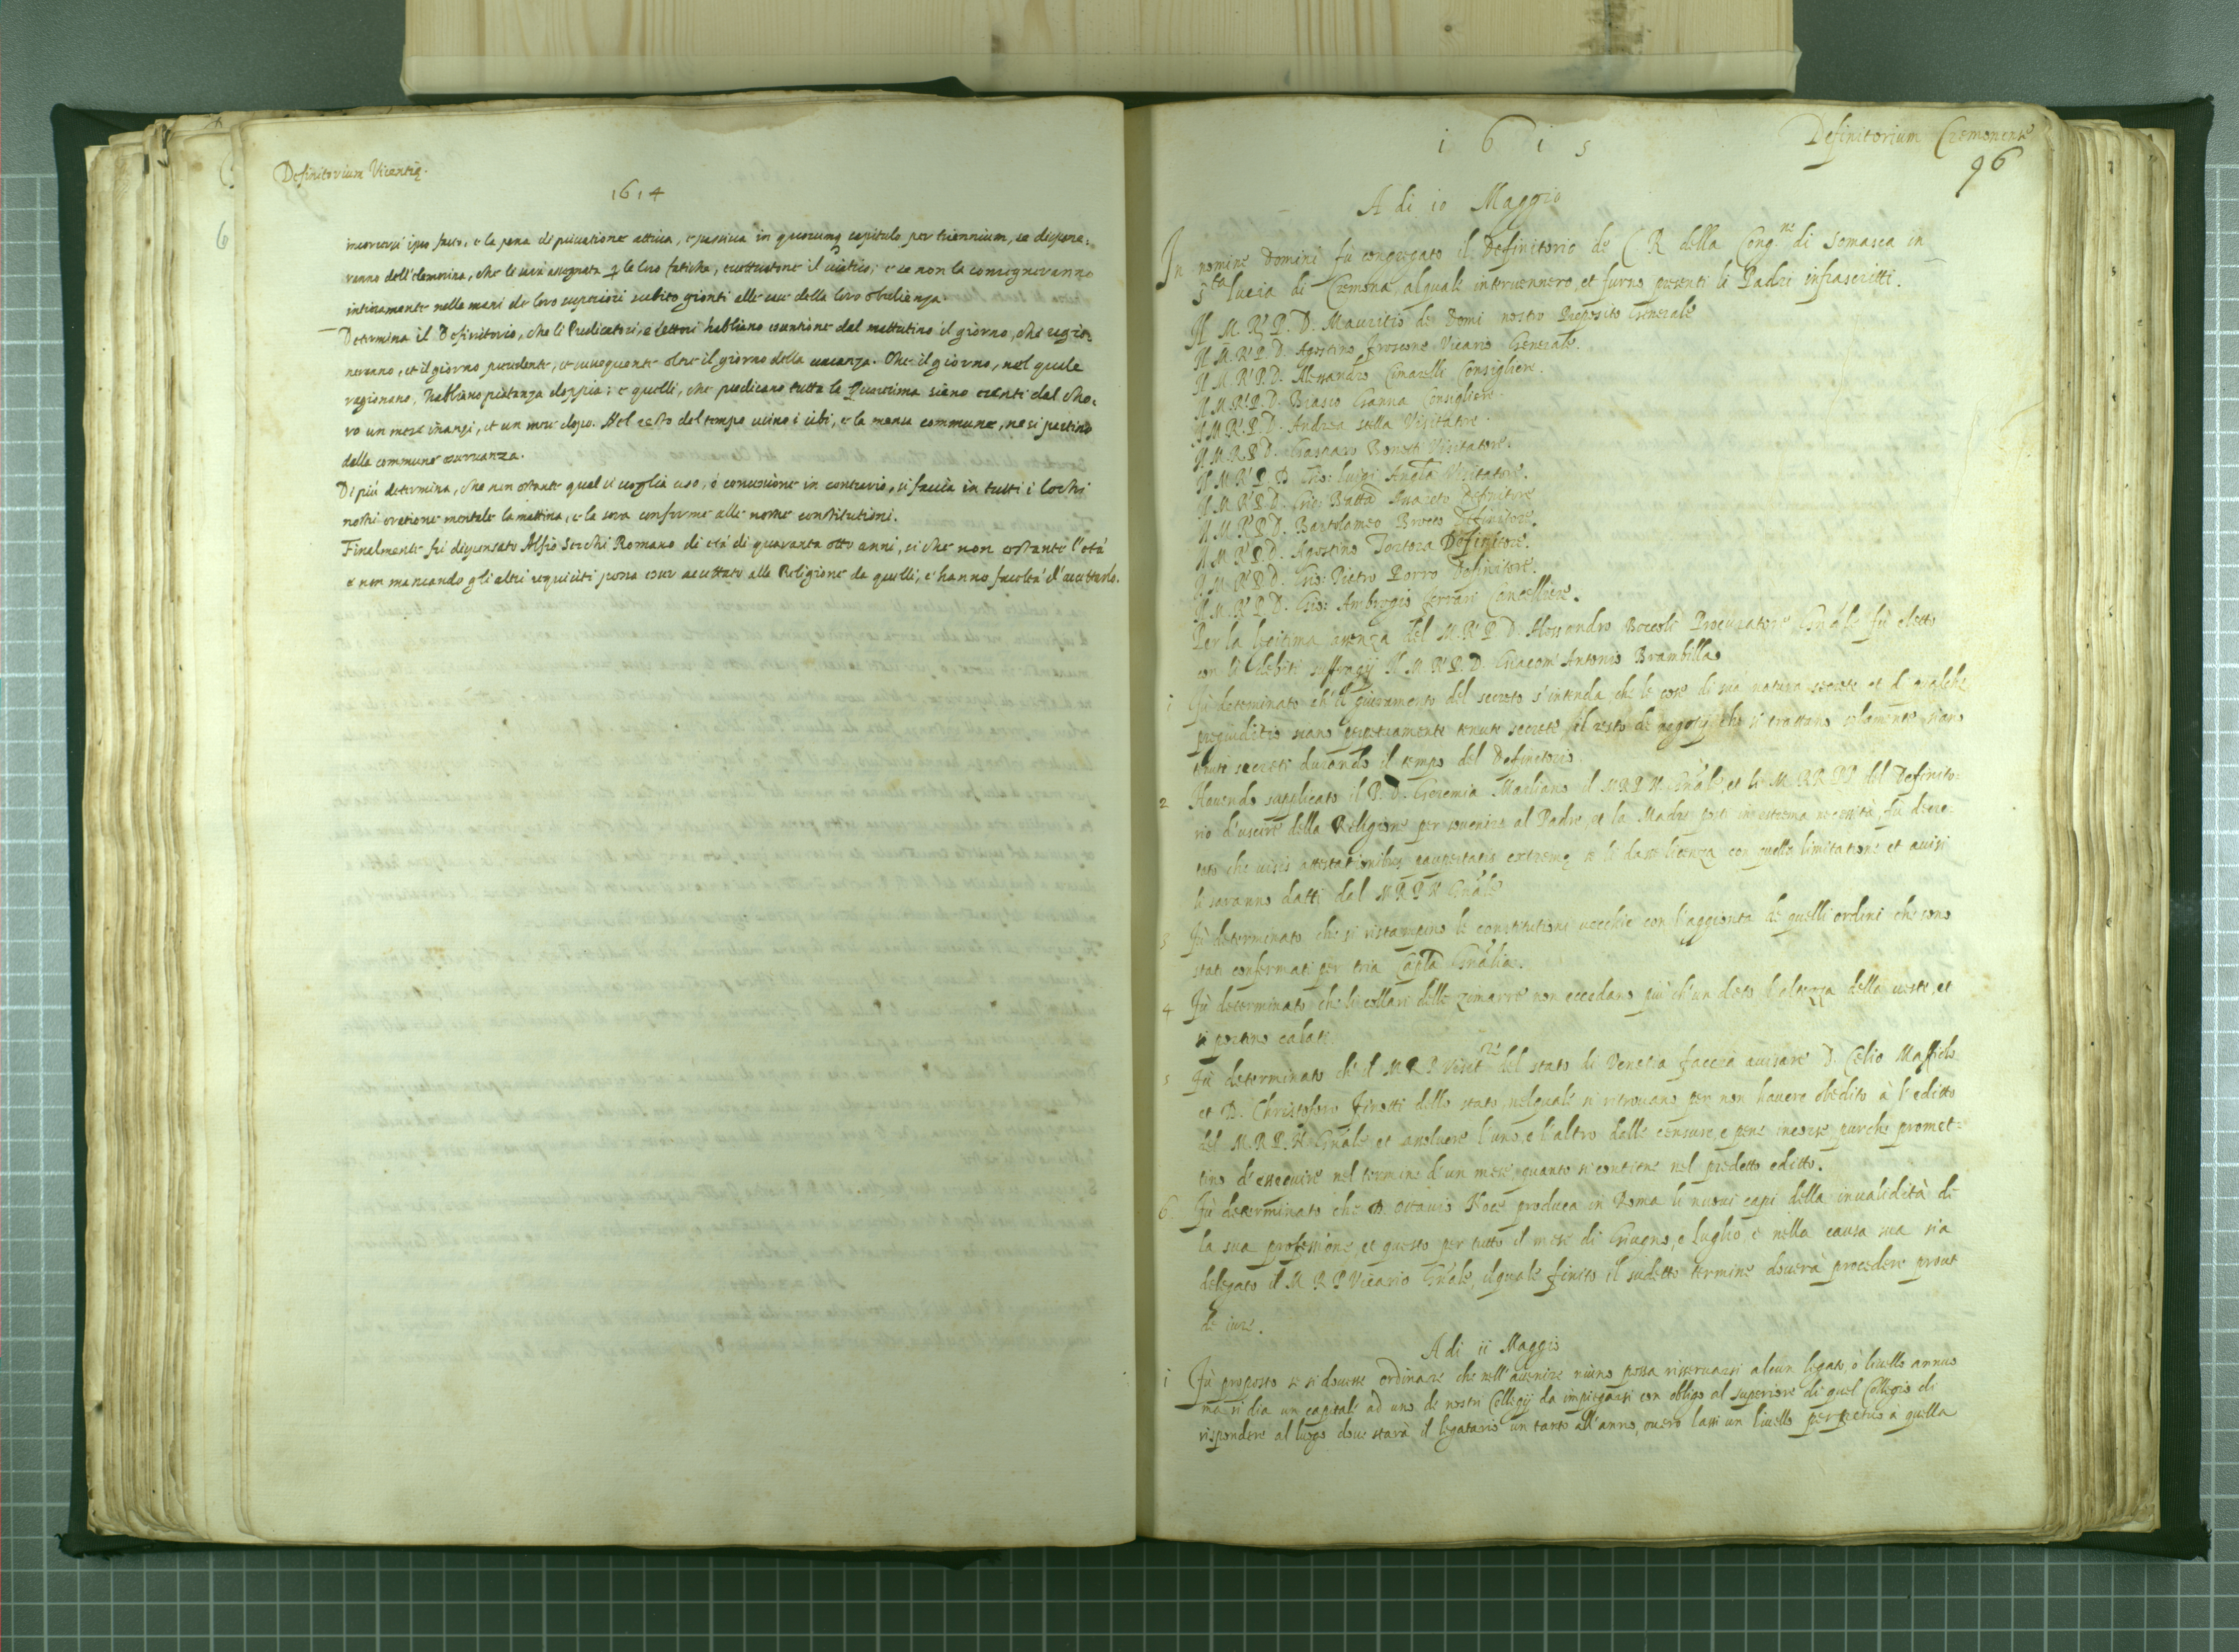 Definitorium Vicentię.
1614
incorrersi ipso facto, e la pena di privatione attiva, e passiva in quocumq capitulo per triennium, se dispene-
ranno dell'elemosina, che le sarà assegnata p le loro fatiche, eccettuatone il viatico; e se non la consigneranno
intieramente nelle mani de loro superiori subito gionti alle case della loro obedienza.
Determina il Definitorio, che li Predicatori, e lettori habbiano esentione dal mattutino il giorno, che ragio-
neranno, et il giorno precedente, et susseguente oltre il giorno della vacanza. Che il giorno, nel quale
ragionano, habbiano pietanza doppia; e quelli, che predicano tutta la Quaresima siano esenti dal cho-
ro un mese inanzi, et un mese dopo. Nel resto del tempo usino i cibi, e la mensa commune, ne si partino
dalla commune osservanza.
Di più determina, che non ostante qual si voglia uso, ó consuetudine in contrario, si faccia in tutti i lochi
nostri oratione mentale la mattina, e la sera conforme alle nostre constitutioni.
Finalmente fù dispensato Alfio Secchi Romano di età di quaranta otto anni, si che non ostante l'età
e non mancando gli altri requisiti possa esser accettato alla Religione da quelli, c'hanno facoltà d'accettarlo.
1615
Definitorium Cremonense
96
A di 10 Maggio
In nomine Domini fù congregato il Definitorio de C R della Cong.ne di Somasca in
S.ta lucia di Cremona, alquale intervennero, et furno presenti li Padri infrascritti.
Il M. R. P. D. Mauritio de Domi nostro Preposito Generale
Il M. R. P. D. Agostino Froscone Vicario Generale.
Il M. R. P. D. Alessandro Cimarelli Consigliere.
Il M. R. P. D. Biasio Ganna Consigliere.
Il M. R. P. D. Andrea Stella Visitatore.
Il M. R. P. D. Gasparo Bonetti Visitatore.
Il M. R. P. D. Gio: Luigi Visitatore.
Il M. R. P. D. Gio: Batta Definitore
Il M. R. P. D. Bartolomeo Brocco Definitore.
Il M. R. P. D. Agostino Tortora Definitore.
Il M. R. P. D. Gio: Pietro Porro Definitore.
Il M. R. P. D. Gio: Ambrogio Ferrari Cancelliere.
Per la legitima assenza del M. R. P. D. Alessandro Boccoli Procuratore Gnale fù eletto
con li debiti suffragij Il M. R. P. D. Giacom' Antonio Brambilla
1 Fù determinato ch'il giuramento del secreto s'intenda che le cose di sua natura secrete et d'qualche
pregiuditio siano perpetuamente tenute secrete, il resto de negotij che si trattano solamente siano
tenuti secreti durando il tempo del Definitorio.
2 Havendo supplicato il P. D. Geremia Marliano il M R P N Gnale, et li M. RR. PP. del Definito-
rio d'uscire della Religione per sovenire al Padre, et la Madre posti in estrema necessità, fù decre-
tato che visis attestationibus paupertatis extremę se li dasse licenza con quella limitatione et avisi
li saranno datti dal M R P N Gnale
3 Fù determinato che si ristampino le constitutioni vecchie con l'aggionta de quelli ordini che sono
stati confermati per tria Capla Gnalia.
4 Fù determinato che li collari delle zimarre non eccedano più ch'un deto l'altezza della veste, et
si portino calati
5 Fù determinato ch'il M R P Visit.re del stato di Venetia faccia avisare D. Celio Maffioli
et D. Christoforo Finotti dello stato, nelquale si ritrovano per non havere obedito à l'editto
del M. R. P. N. Gnale et assolvere l'uno, e l'altro dalle censure, e pene incorse, purche promet-
tino d'essequire nel termine d'un mese, quanto si contiene nel predetto editto.
6 Fù determinato che D. Ottavio Noce produca in Roma li nuovi capi della invalidità de
la sua professione, et questo per tutto il mese di Giugno, e luglio, e nella causa sua sia
delegato il M R P Vicario Gnale, ilquale finito il sudetto termine doverà procedere prout
de iure.
A di 11 Maggio
1 Fù proposto se si dovesse ordinare che nell'avenire niuno possa riservarsi alcun legato, ò livello annuo
ma si dia un capitale ad uno de nostri Collegij da impiegarsi con obligo al superiore di quel Collegio di
rispondere al luogo dove starà il legatario un tanto all'anno, overo lassi un livello perpetuo à quella